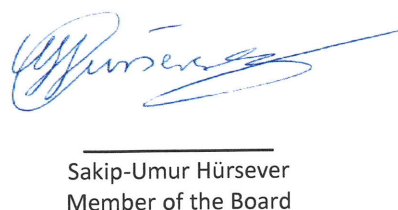 Sakip-Umur Hürsever
Member of the Board